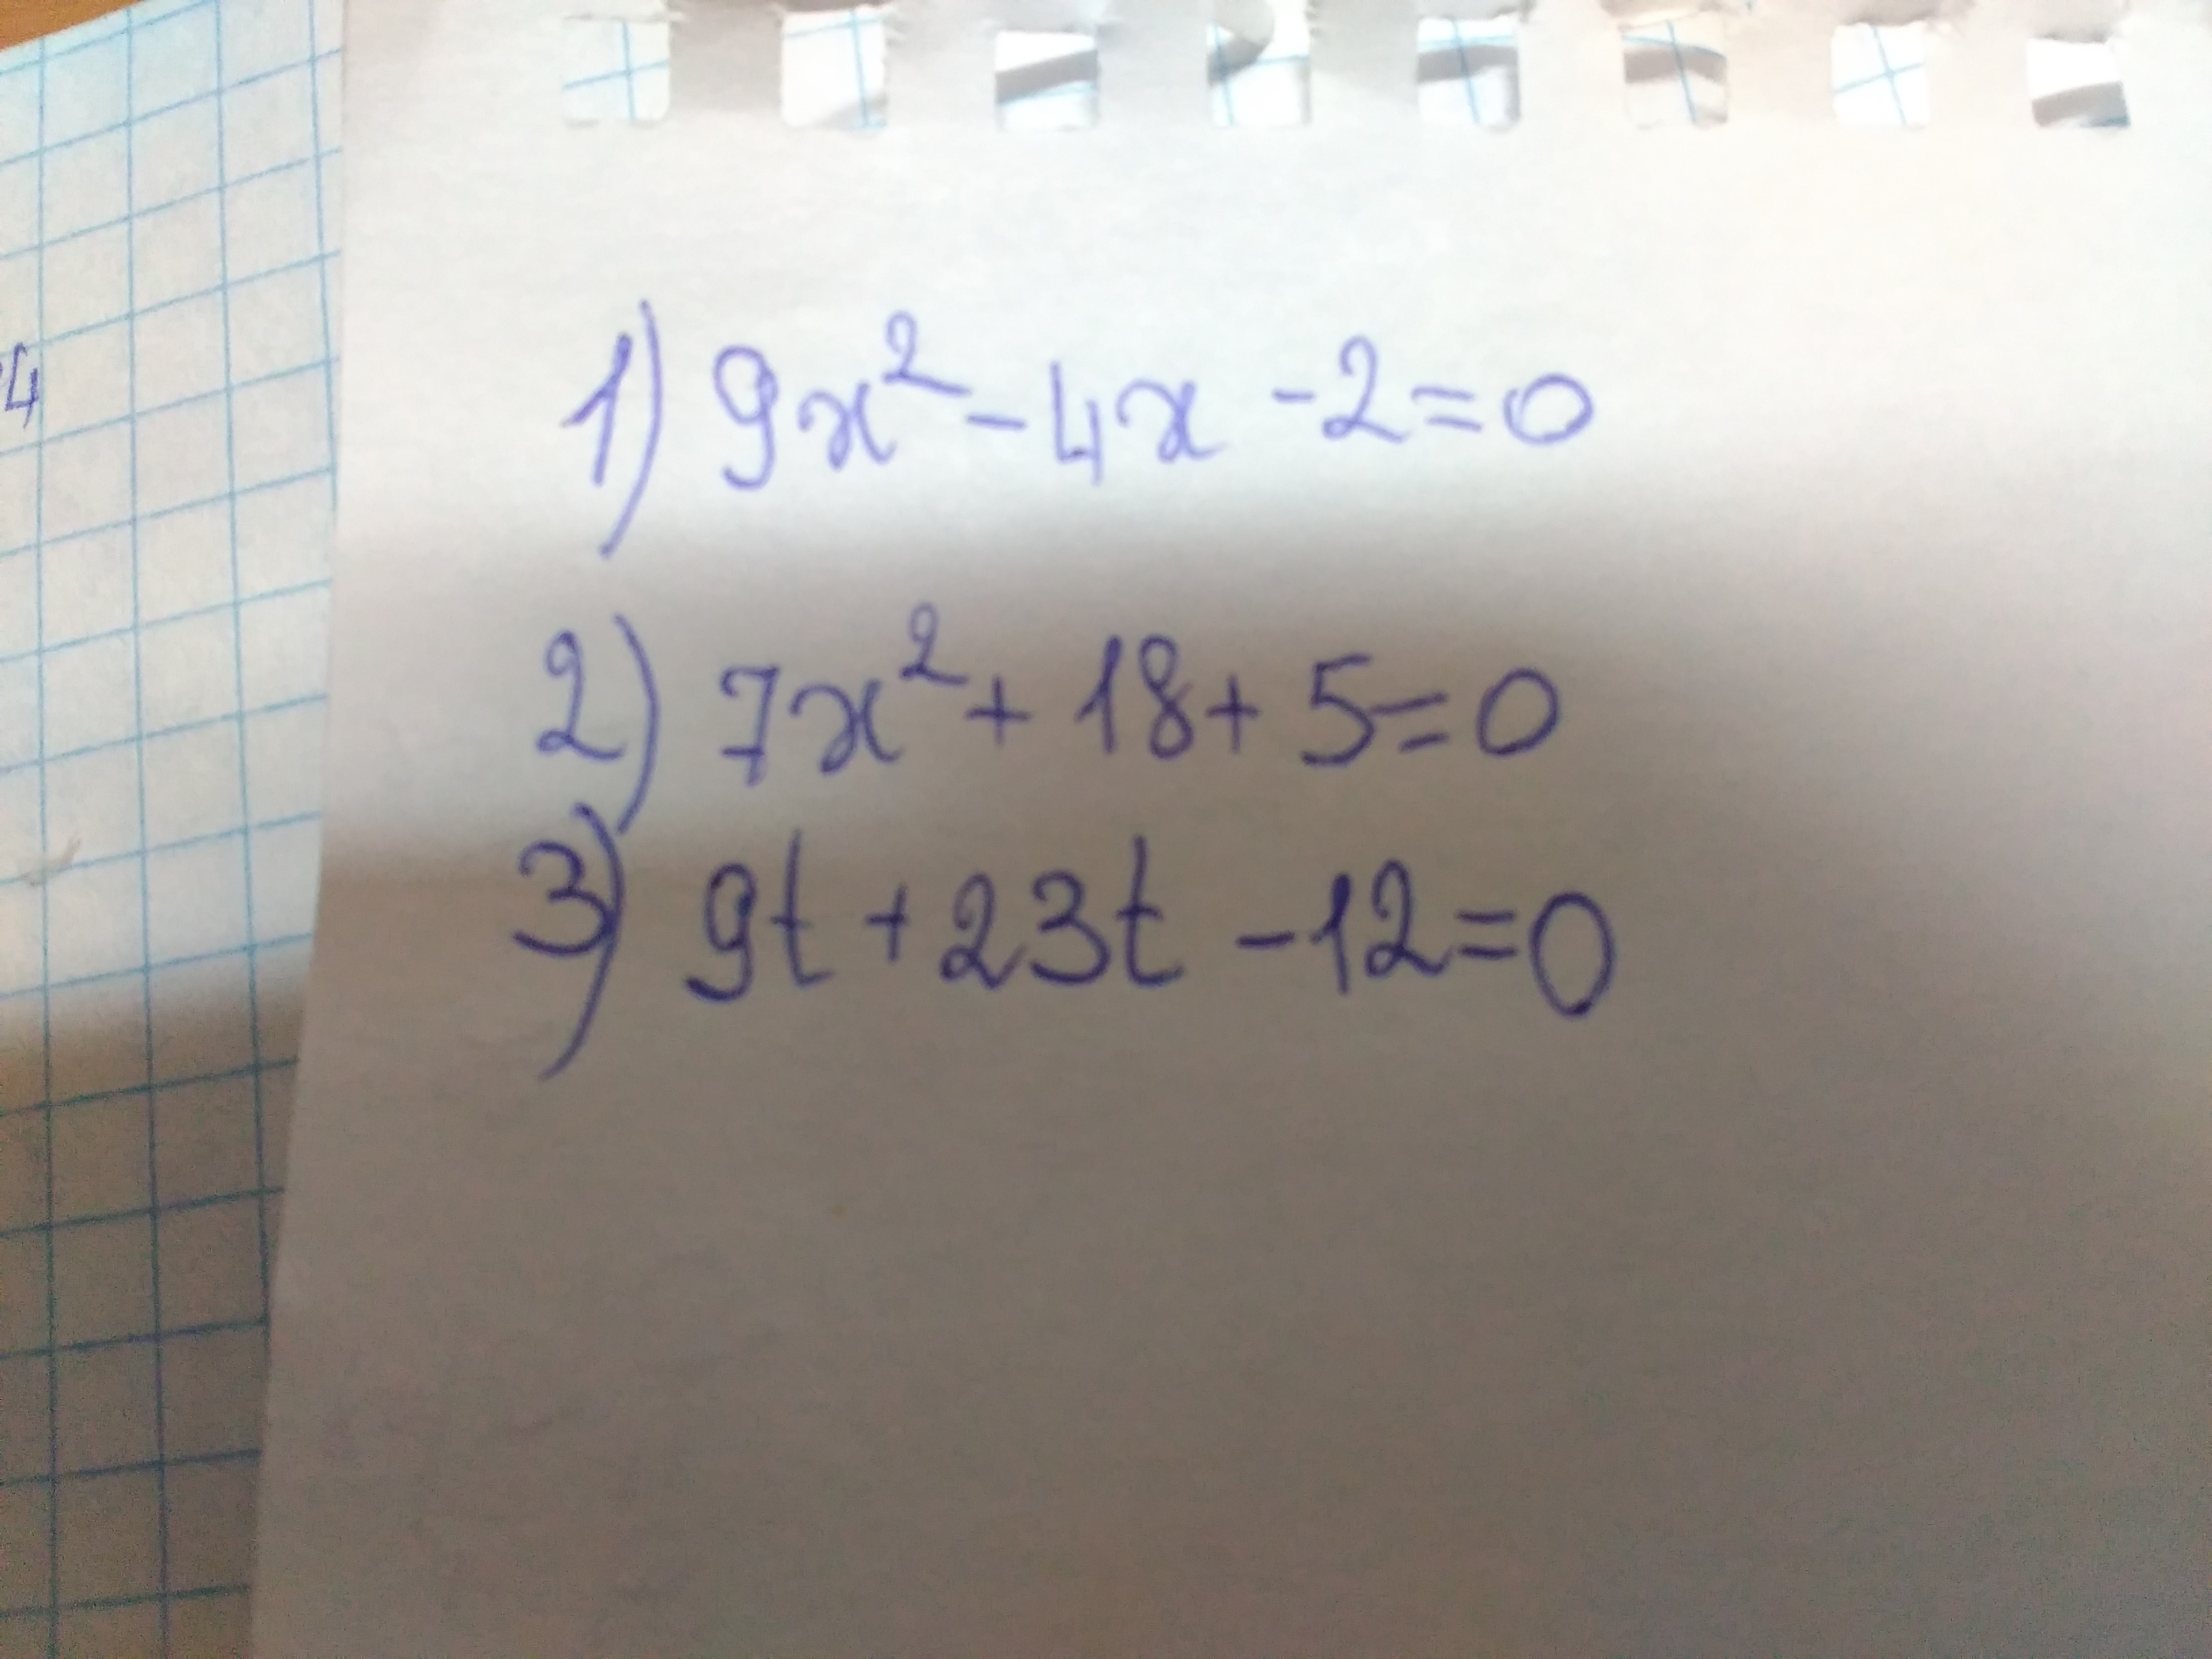 4
1) 9x² - 4x - 2 = 0
2) 7x² + 18 + 5 = 0
3) 9t + 23t - 12 = 0